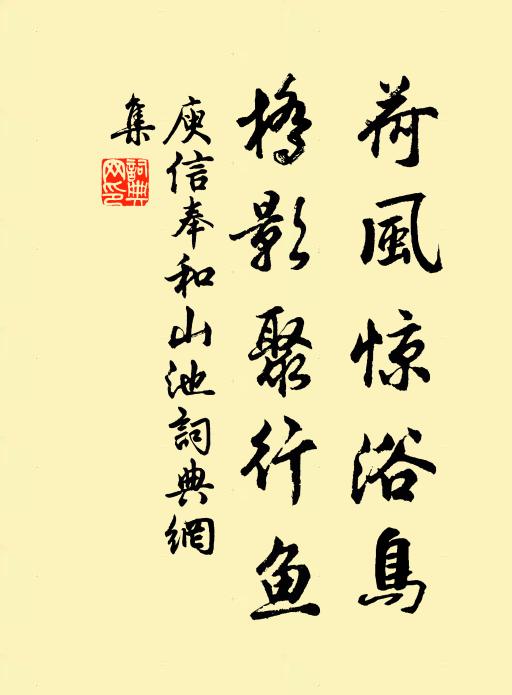 荷風惊浴鳥
橋影聚行鱼
庾信奉和山池詞典網
集
詞典
网印